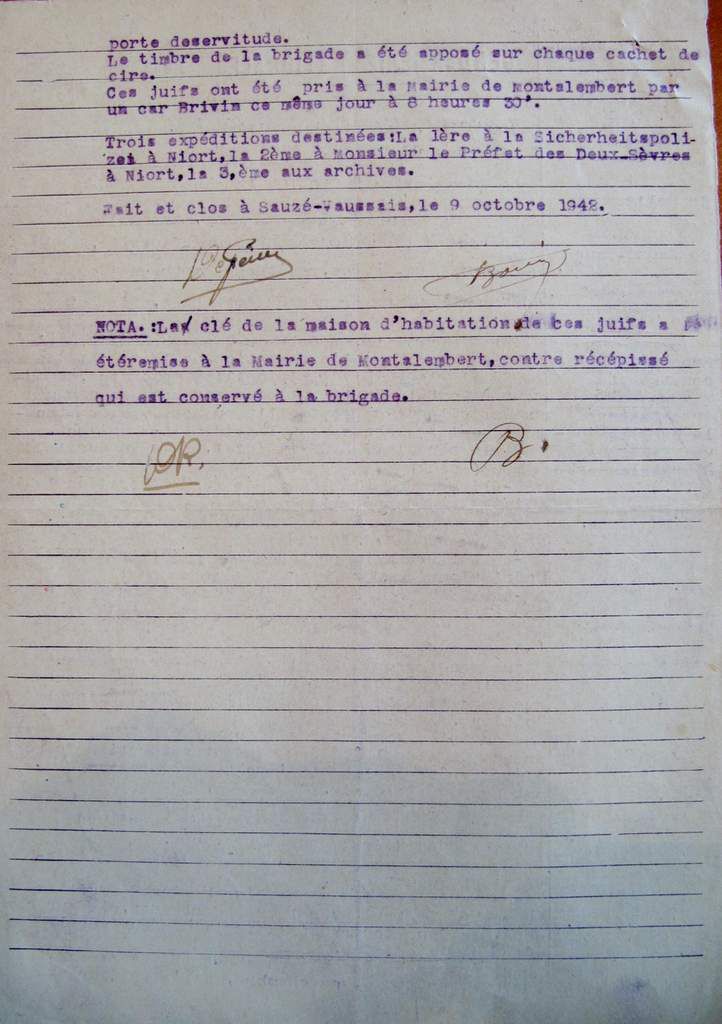 porte deservitude.
Le timbre de la brigade a été apposé sur chaque cachet de
cire.
Ces juifs ont été pris à la Mairie de Montalembert par
un car Brivin ce même jour à 8 heures 30'.
Trois expéditions destinées:La 1ère à la Sicherheitspoli-
zei à Niort,la 2ème à Monsieur le Préfet des Deux-Sèvres
à Niort,la 3,ème aux archives.
Fait et clos à Sauzé-Vaussais,le 9 octobre 1942.
NOTA.:La clé de la maison d'habitation de ces juifs a
étéremise à la Mairie de Montalembert,contre récépissé
qui est conservé à la brigade.
B.